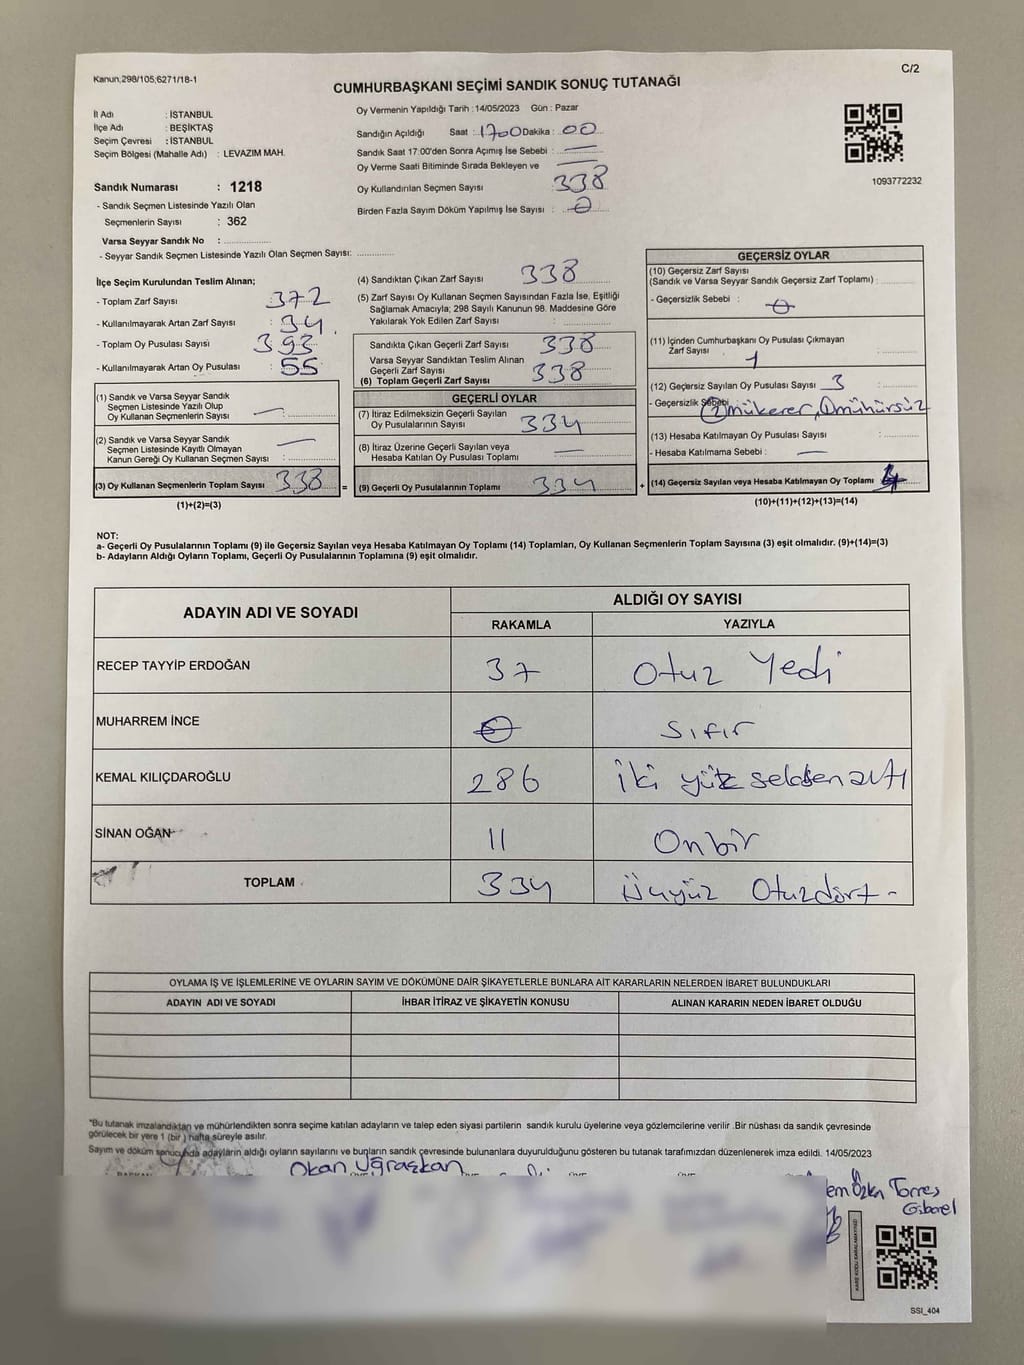 Kanun;298/105;6271/18-1
C/2
CUMHURBAŞKANI SEÇİMİ SANDIK SONUÇ TUTANAĞI
İl Adı : İSTANBUL
İlçe Adı : BEŞİKTAŞ
Seçim Çevresi : İSTANBUL
Seçim Bölgesi (Mahalle Adı) : LEVAZIM MAH.
Sandık Numarası : 1218
- Sandık Seçmen Listesinde Yazılı Olan
Seçmenlerin Sayısı : 362
Varsa Seyyar Sandık No :
- Seyyar Sandık Seçmen Listesinde Yazılı Olan Seçmen Sayısı:
Oy Vermenin Yapıldığı Tarih : 14/05/2023 Gün : Pazar
Sandığın Açıldığı Saat : 1700 Dakika : 00
Sandık Saat 17:00'den Sonra Açımış İse Sebebi :
Oy Verme Saati Bitiminde Sırada Bekleyen ve
Oy Kullandırılan Seçmen Sayısı 338
Birden Fazla Sayım Döküm Yapılmış İse Sayısı : 0
1093772232
İlçe Seçim Kurulundan Teslim Alınan;
- Toplam Zarf Sayısı : 372
- Kullanılmayarak Artan Zarf Sayısı : 34
- Toplam Oy Pusulası Sayısı 393
- Kullanılmayarak Artan Oy Pusulası : 55
(1) Sandık ve Varsa Seyyar Sandık
Seçmen Listesinde Yazılı Olup
Oy Kullanan Seçmenlerin Sayısı :
(2) Sandık ve Varsa Seyyar Sandık
Seçmen Listesinde Kayıtlı Olmayan
Kanun Gereği Oy Kullanan Seçmen Sayısı :
(3) Oy Kullanan Seçmenlerin Toplam Sayısı 338
(1)+(2)=(3)
(4) Sandıktan Çıkan Zarf Sayısı 338
(5) Zarf Sayısı Oy Kullanan Seçmen Sayısından Fazla İse, Eşitliği
Sağlamak Amacıyla; 298 Sayılı Kanunun 98. Maddesine Göre
Yakılarak Yok Edilen Zarf Sayısı :
Sandıkta Çıkan Geçerli Zarf Sayısı 338
Varsa Seyyar Sandıktan Teslim Alınan
Geçerli Zarf Sayısı
(6) Toplam Geçerli Zarf Sayısı 338
GEÇERLİ OYLAR
(7) İtiraz Edilmeksizin Geçerli Sayılan
Oy Pusulalarının Sayısı 334
(8) İtiraz Üzerine Geçerli Sayılan veya
Hesaba Katılan Oy Pusulası Toplamı
= (9) Geçerli Oy Pusulalarının Toplamı 334
GEÇERSİZ OYLAR
(10) Geçersiz Zarf Sayısı
(Sandık ve Varsa Seyyar Sandık Geçersiz Zarf Toplamı) :
- Geçersizlik Sebebi : 0
(11) İçinden Cumhurbaşkanı Oy Pusulası Çıkmayan
Zarf Sayısı 1
(12) Geçersiz Sayılan Oy Pusulası Sayısı 3
- Geçersizlik Sebebi (2) mükerer, (1) mühürsüz
(13) Hesaba Katılmayan Oy Pusulası Sayısı :
- Hesaba Katılmama Sebebi :
+ (14) Geçersiz Sayılan veya Hesaba Katılmayan Oy Toplamı 4
(10)+(11)+(12)+(13)=(14)
NOT:
a- Geçerli Oy Pusulalarının Toplamı (9) ile Geçersiz Sayılan veya Hesaba Katılmayan Oy Toplamı (14) Toplamları, Oy Kullanan Seçmenlerin Toplam Sayısına (3) eşit olmalıdır. (9)+(14)=(3)
b- Adayların Aldığı Oyların Toplamı, Geçerli Oy Pusulalarının Toplamına (9) eşit olmalıdır.
ADAYIN ADI VE SOYADI
ALDIĞI OY SAYISI
RAKAMLA YAZIYLA
RECEP TAYYİP ERDOĞAN 37 Otuz Yedi
MUHARREM İNCE 0 Sıfır
KEMAL KILIÇDAROĞLU 286 İki yüz seksen altı
SİNAN OĞAN 11 Onbir
TOPLAM 334 Üçyüz Otuzdört -
OYLAMA İŞ VE İŞLEMLERİNE VE OYLARIN SAYIM VE DÖKÜMÜNE DAİR ŞİKAYETLERLE BUNLARA AİT KARARLARIN NELERDEN İBARET BULUNDUKLARI
ADAYIN ADI VE SOYADI İHBAR İTİRAZ VE ŞİKAYETİN KONUSU ALINAN KARARIN NEDEN İBARET OLDUĞU
*Bu tutanak imzalandıktan ve mühürlendikten sonra seçime katılan adayların ve talep eden siyasi partilerin sandık kurulu üyelerine veya gözlemcilerine verilir .Bir nüshası da sandık çevresinde
görülecek bir yere 1 (bir ) hafta süreyle asılır.
Sayım ve döküm sonucunda adayların aldığı oyların sayılarını ve bunların sandık çevresinde bulunanlara duyurulduğunu gösteren bu tutanak tarafımızdan düzenlenerek imza edildi. 14/05/2023
Okan Uğraşkan
Torres
SSI_404